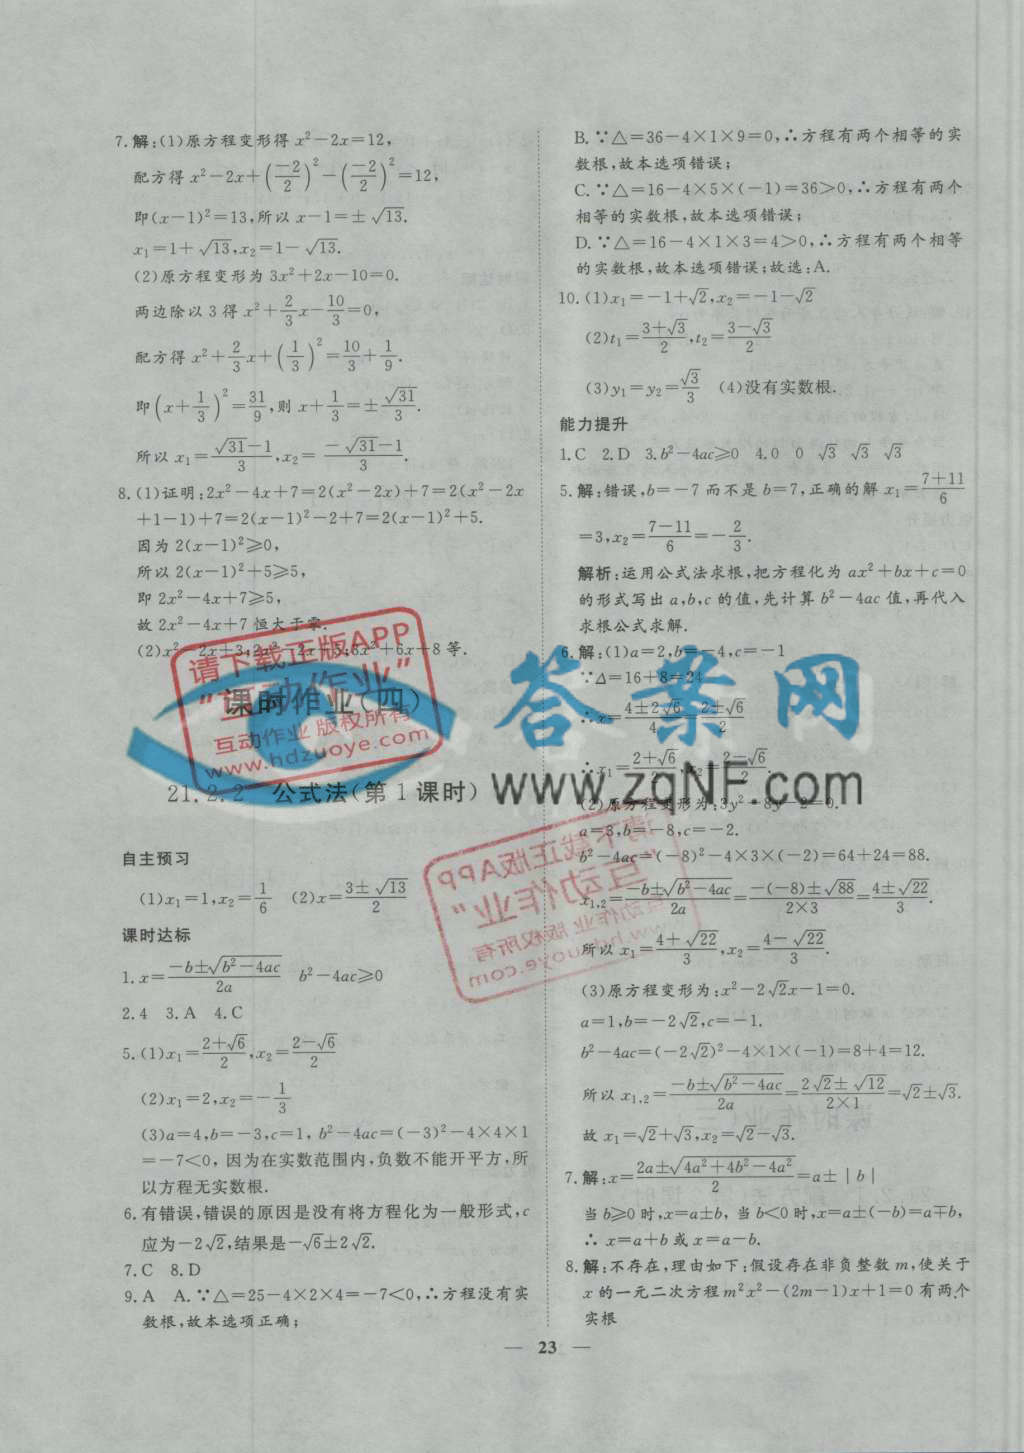 7.解:(1)原方程变形得 x²-2x=12,
配方得 x²-2x+(-2/2)²-(-2/2)²=12,
即(x-1)²=13,所以 x-1=±√13.
x₁=1+√13,x₂=1-√13.
(2)原方程变形为 3x²+2x-10=0.
两边除以 3 得 x²+2/3x-10/3=0,
配方得 x²+2/3x+(1/3)²=10/3+1/9.
即(x+1/3)²=31/9,则 x+1/3=±√31/3.
所以 x₁=(√31-1)/3,x₂=(-√31-1)/3.
8.(1)证明:2x²-4x+7=2(x²-2x)+7=2(x²-2x
+1-1)+7=2(x-1)²-2+7=2(x-1)²+5.
因为 2(x-1)²≥0,
所以 2(x-1)²+5≥5,
即 2x²-4x+7≥5,
故 2x²-4x+7 恒大于零.
(2)x²-2x+3;2x²-2x+5;3x²+6x+8 等.
课时作业(四)
21.2.2 公式法(第 1 课时)
自主预习
(1)x₁=1,x₂=1/6 (2)x=(3±√13)/2
课时达标
1.x=(-b±√(b²-4ac))/2a b²-4ac≥0
2.4 3.A 4.C
5.(1)x₁=(2+√6)/2,x₂=(2-√6)/2
(2)x₁=2,x₂=-1/3
(3)a=4,b=-3,c=1, b²-4ac=(-3)²-4×4×1
=-7<0, 因为在实数范围内,负数不能开平方,所
以方程无实数根.
6.有错误,错误的原因是没有将方程化为一般形式,c
应为-2√2,结果是-√6±2√2.
7.C 8.D
9.A A.∵△=25-4×2×4=-7<0,∴方程没有实
数根,故本选项正确;
B.∵△=36-4×1×9=0,∴方程有两个相等的实
数根,故本选项错误;
C.∵△=16-4×5×(-1)=36>0,∴方程有两个
相等的实数根,故本选项错误;
D.∵△=16-4×1×3=4>0,∴方程有两个相等
的实数根,故本选项错误;故选:A.
10.(1)x₁=-1+√2,x₂=-1-√2
(2)t₁=(3+√3)/2,t₂=(3-√3)/2
(3)y₁=y₂=√3/3 (4)没有实数根.
能力提升
1.C 2.D 3.b²-4ac≥0 4.0 0 √3 √3 √3
5.解:错误,b=-7 而不是 b=7,正确的解 x₁=(7+11)/6
=3,x₂=(7-11)/6=-2/3.
解析:运用公式法求根,把方程化为 ax²+bx+c=0
的形式写出 a,b,c 的值,先计算 b²-4ac 值,再代入
求根公式求解.
6.解:(1)a=2,b=-4,c=-1
∵△=16+8=24
∴x=(4±2√6)/4=(2±√6)/2
∴x₁=(2+√6)/2 x₂=(2-√6)/2
(2)原方程变形为:3y²-8y-2=0.
a=3,b=-8,c=-2.
b²-4ac=(-8)²-4×3×(-2)=64+24=88.
x₁,₂=(-b±√(b²-4ac))/2a=(-(-8)±√88)/(2×3)=(4±√22)/3.
所以 x₁=(4+√22)/3,x₂=(4-√22)/3.
(3)原方程变形为:x²-2√2x-1=0.
a=1,b=-2√2,c=-1.
b²-4ac=(-2√2)²-4×1×(-1)=8+4=12.
所以 x₁,₂=(-b±√(b²-4ac))/2a=(2√2±√12)/(2×1)=√2±√3.
故 x₁=√2+√3,x₂=√2-√3.
7.解:x=(2a±√(4a²+4b²-4a²))/2=a±|b|
当 b≥0 时,x=a±b, 当 b<0 时,x=a±(-b)=a∓b,
∴ x=a+b 或 x=a-b.
8.解:不存在,理由如下:假设存在非负整数 m,使关于
x 的一元二次方程 m²x²-(2m-1)x+1=0 有两个
实根
— 23 —
请下载正版APP
“互动作业”
互动作业 版权所有
www.hdzuoye.com
答案网
www.zqNF.com
请下载正版APP
“互动作业”
互动作业 版权所有
www.hdzuoye.com